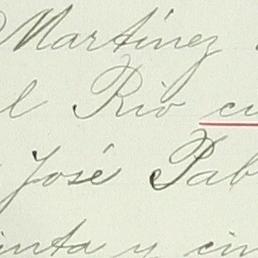 Martínez
l Rio cu
José Pab
inta y cin